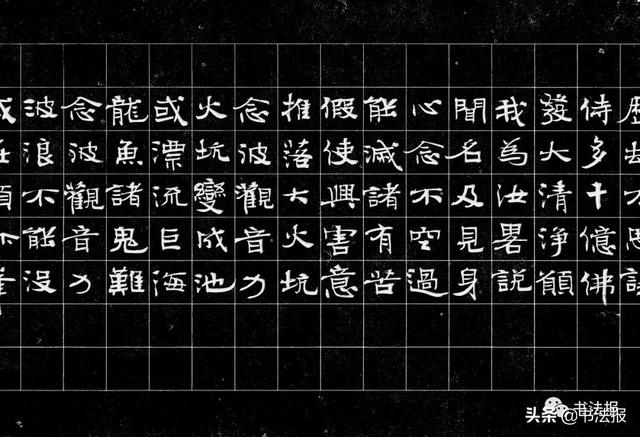 侍多千億佛
發大清淨願
我為汝畧說
聞名及見身
心念不空過
能滅諸有苦
假使興害意
推落大火坑
念彼觀音力
火坑變成池
或漂流巨海
龍魚諸鬼難
念彼觀音力
波浪不能没
书法报
头条 @书法报